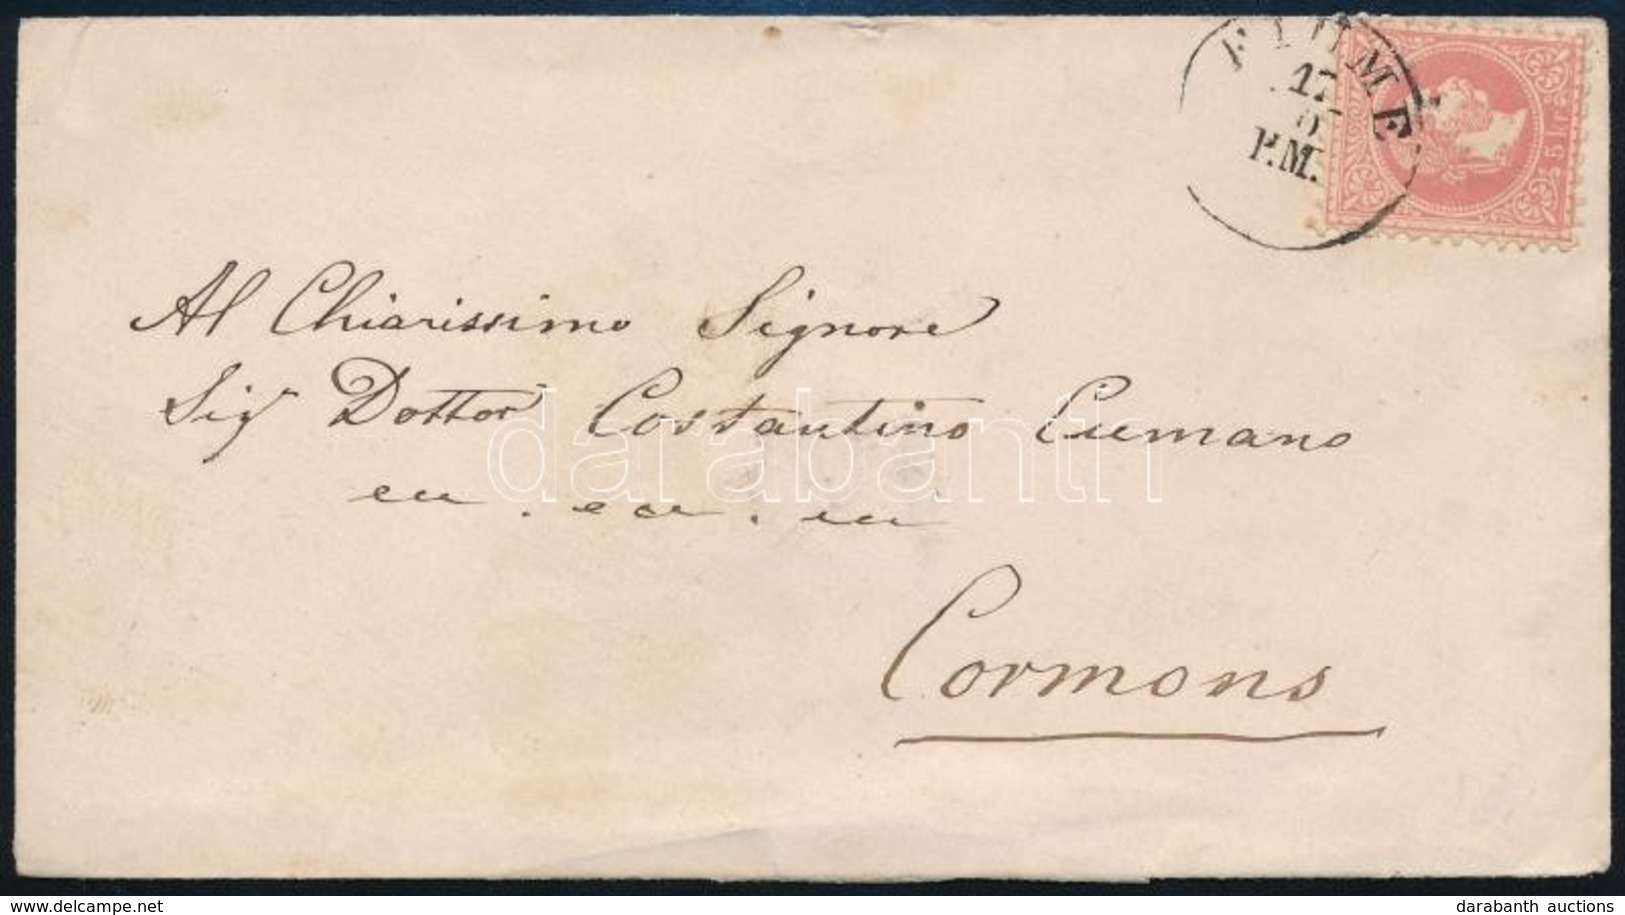 FIUME
17
P.M.
5 kr.
Al Chiarissimo Signore
Sigr Dottor Costantino Cumano
darabanth
Cormons
www.delcampe.net
darabanth auctions